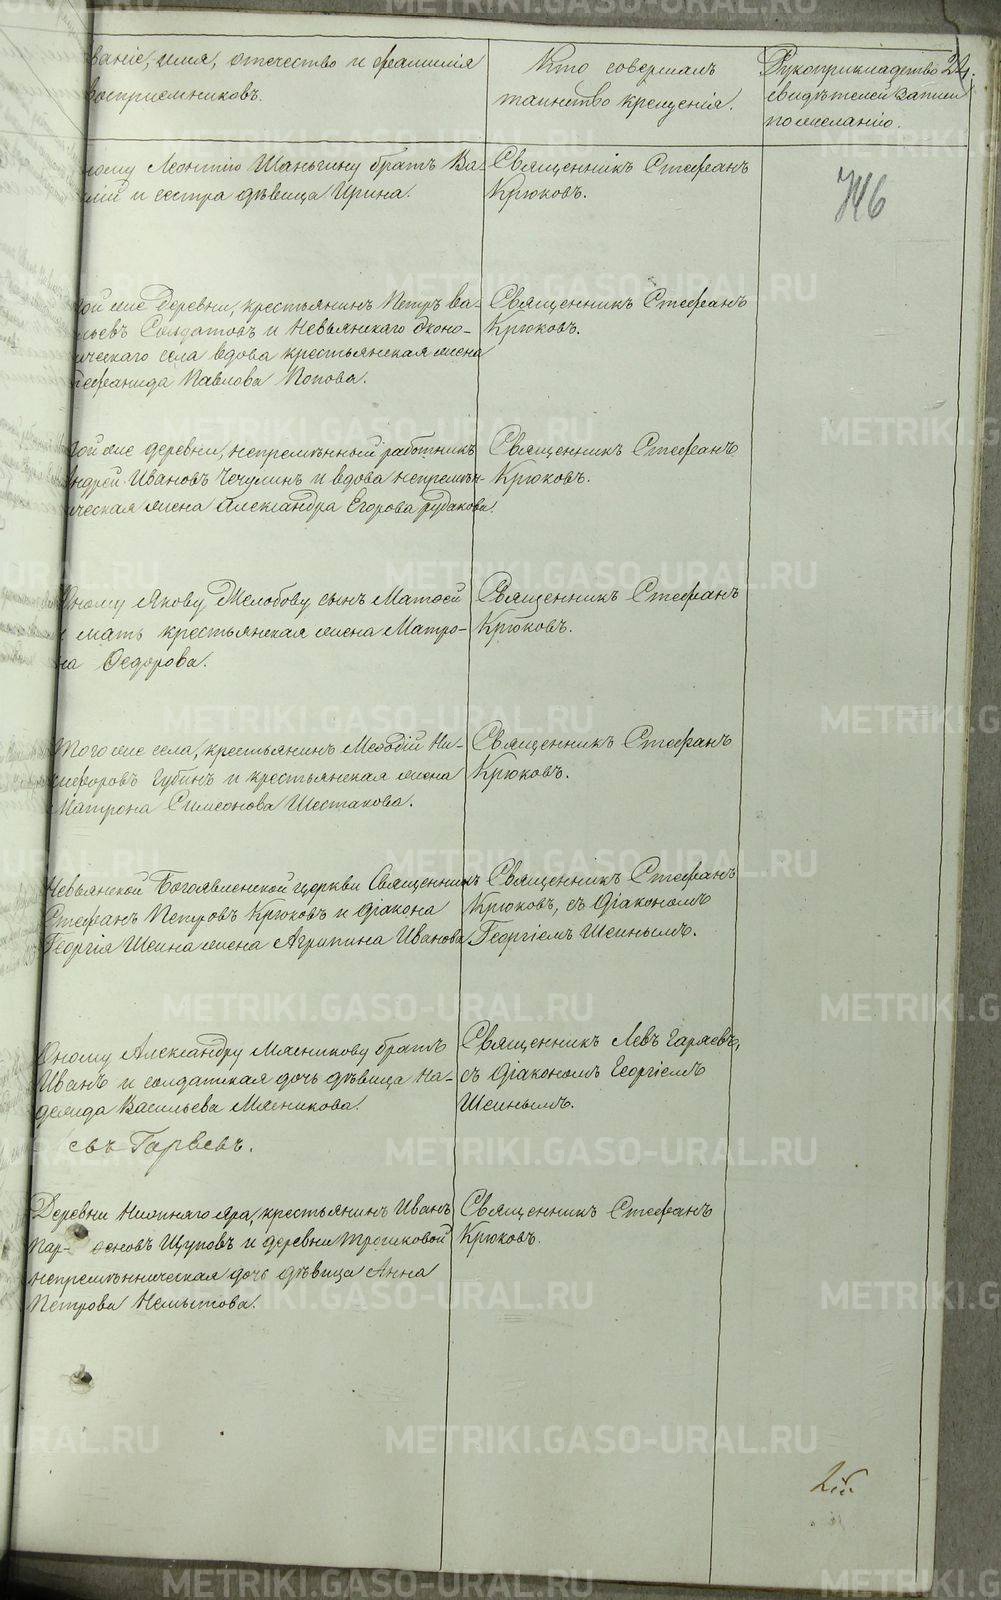 званіе, имя, отечество и фамилія
воспріемниковъ.
Кто совершалъ
таинство крещенія.
Рукоприкладство
свидѣтелей записи
по желанію.
24.
746
ному Леонтію Шаньгину братъ Ва-
илій и сестра дѣвица Ирина.
Священникъ Стефанъ
Крюковъ.
той же деревни, крестьянинъ Петръ Ва-
льевъ Солдатовъ и Невьянскаго эконо-
мическаго села вдова крестьянская жена
тефанида Павлова Попова.
Священникъ Стефанъ
Крюковъ.
той же деревни, непремѣнный работникъ
Андрей Ивановъ Чечулинъ и вдова непремѣн-
ническая жена Александра Егорова Рудакова.
Священникъ Стефанъ
Крюковъ.
Оному Якову Желобову сынъ Матѳей
и мать крестьянская жена Матро-
на Ѳедорова.
Священникъ Стефанъ
Крюковъ.
Того же села, крестьянинъ Меѳодій Ни-
кифоровъ Губинъ и крестьянская жена
Матрона Симеонова Шестакова.
Священникъ Стефанъ
Крюковъ.
Невьянской Богоявленской церкви Священникъ
Стефанъ Петровъ Крюковъ и діакона
Георгія Шеина жена Агрипина Иванова
Священникъ Стефанъ
Крюковъ, съ діакономъ
Георгіемъ Шеинымъ.
Оному Александру Мясникову братъ
Иванъ и солдатская дочь дѣвица На-
дежда Васильева Мясникова.
Священникъ Левъ Гаряевъ,
съ діакономъ Георгіемъ
Шеинымъ.
Деревни Нижняго яра, крестьянинъ Иванъ
Пар- ѳеновъ Щуповъ и деревни Трошковой
непремѣнническая дочь дѣвица Анна
Петрова Немытова.
Священникъ Стефанъ
Крюковъ.
METRIKI.GASO-URAL.RU